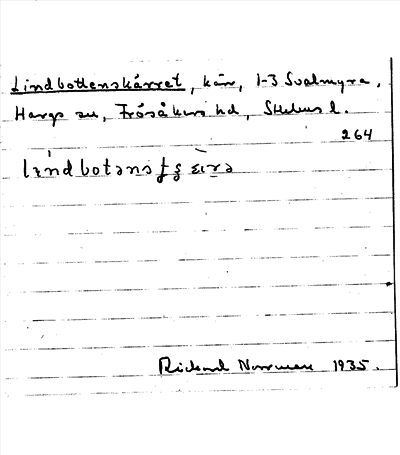 Lindbottenskärret, kärr, 1-3 Svalmyra,
Hargs sn, Frösåkers hd, Sthlms l.
264
Richard Norrman 1935.